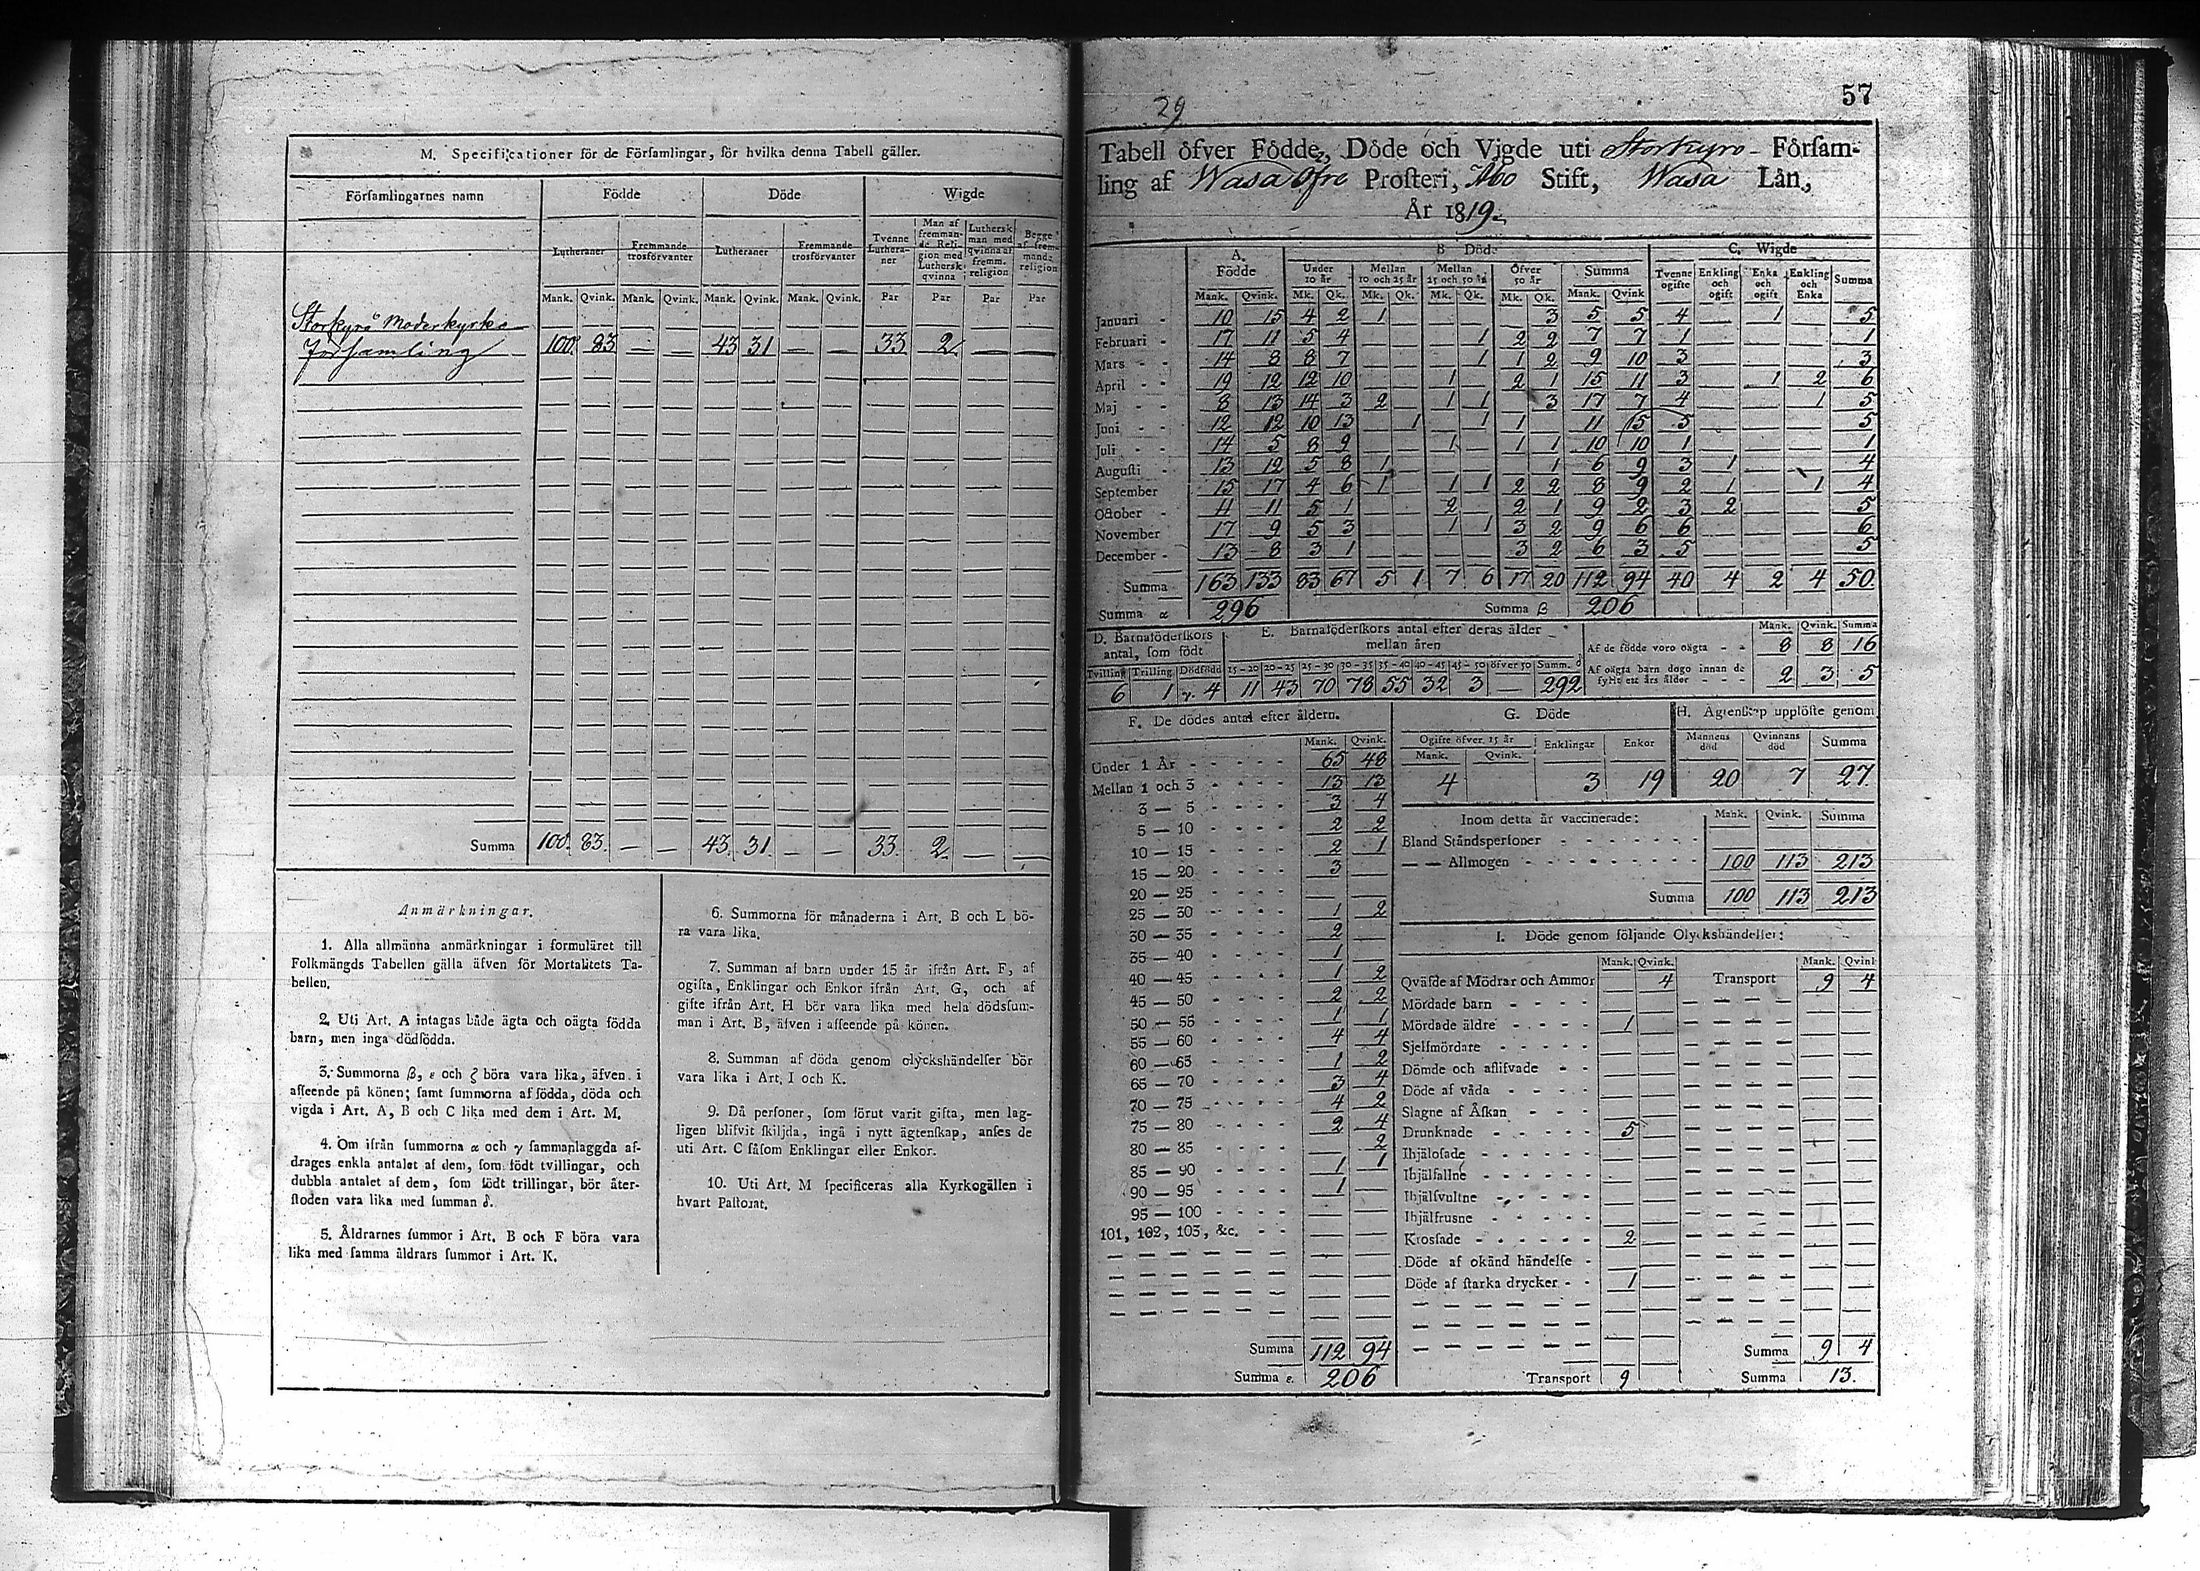 M. Specificationer för de Församlingar, för hvilka denna Tabell gäller.
Församlingarnes namn | Födde | Döde | Wigde
Lutheraner | Fremmande trosförvanter | Lutheraner | Fremmande trosförvanter | Tvenne Lutheraner | Man af fremmande Religion med Luthersk qvinna | Luthersk man med qvinna af fremm. religion | Begge af fremmande religion
Mank. Qvink. Mank. Qvink. Mank. Qvink. Mank. Qvink. Par Par Par Par
Storkyrå Moderkyrko
Församling 100 83 — — 43 31 — — 33 2 — —
Summa 100. 83. — — 43. 31. — — 33. 2. — —
Anmärkningar.
1. Alla allmänna anmärkningar i formuläret till
Folkmängds Tabellen gälla äfven för Mortalitets Ta-
bellen.
2. Uti Art. A intagas både ägta och oägta födda
barn, men inga dödfödda.
3. Summorna β, ε och ζ böra vara lika, äfven i
afseende på könen; samt summorna af födda, döda och
vigda i Art. A, B och C lika med dem i Art. M.
4. Om ifrån summorna α och γ sammanlaggda af-
drages enkla antalet af dem, som födt tvillingar, och
dubbla antalet af dem, som födt trillingar, bör åter-
stoden vara lika med summan δ.
5. Åldrarnes summor i Art. B och F böra vara
lika med samma åldrars summor i Art. K.
6. Summorna för månaderna i Art. B och L bö-
ra vara lika.
7. Summan af barn under 15 år ifrån Art. F, af
ogifta, Enklingar och Enkor ifrån Art. G, och af
gifte ifrån Art. H bör vara lika med hela dödssum-
man i Art. B, äfven i afseende på könen.
8. Summan af döda genom olyckshändelser bör
vara lika i Art. I och K.
9. Då personer, som förut varit gifta, men lag-
ligen blifvit skiljda, ingå i nytt ägtenskap, anses de
uti Art. C såsom Enklingar eller Enkor.
10. Uti Art. M specificeras alla Kyrkogällen i
hvart Pastorat.
57
29
Tabell öfver Födde, Döde och Vigde uti Storkyro Försam-
ling af Wasa öfre Prosteri, Åbo Stift, Wasa Län,
År 1819.
A. Födde | B Döde | C. Wigde
Under 10 år | Mellan 10 och 25 år | Mellan 25 och 50 år | Öfver 50 år | Summa | Tvenne ogifte | Enkling och ogift | Enka och ogift | Enkling och Enka | Summa
Mank. Qvink. Mk. Qk. Mk. Qk. Mk. Qk. Mk. Qk. Mank. Qvink
Januari - 10 15 4 2 1 3 5 5 4 — 1 5
Februari - 17 11 5 4 1 2 2 7 7 1 1
Mars - - 14 8 8 7 1 1 2 9 10 3 3
April - - 19 12 12 10 1 2 1 15 11 3 1 2 6
Maj - - 8 13 14 3 2 1 1 3 17 7 4 1 5
Juni - - 12 12 10 13 1 1 1 11 15 5 5
Juli - - 14 5 8 9 1 1 1 10 10 1 1
Augusti - 13 12 5 8 1 1 6 9 3 1 4
September 15 17 4 6 1 1 1 2 2 8 9 2 1 1 4
October - 11 11 5 1 2 2 1 9 2 3 2 5
November 17 9 5 3 1 1 3 2 9 6 6 6
December - 13 8 3 1 3 2 6 3 5 5
Summa 163 133 83 67 5 1 7 6 17 20 112 94 40 4 2 4 50
Summa α 296 Summa β 206
D. Barnaföderskors antal, som födt | E. Barnaföderskors antal efter deras ålder mellan åren | Mank. Qvink. Summa
Af de födde voro oägta - - 8 8 16
Af oägta barn dogo innan de fyllt ett års ålder - - - 2 3 5
Tvilling Trilling Dödfödd 15-20 20-25 25-30 30-35 35-40 40-45 45-50 öfver 50 Summ. δ
6 1 γ. 4 11 43 70 78 55 32 3 — 292
F. De dödes antal efter åldern.
Mank. Qvink.
Under 1 År - - - - - 65 48
Mellan 1 och 3 - - - - 13 13
3 — 5 - - - - 3 4
5 — 10 - - - - 2 2
10 — 15 - - - - 2 1
15 — 20 - - - - 3
20 — 25 - - - -
25 — 30 - - - - 1 2
30 — 35 - - - - 2
35 — 40 - - - - 1
40 — 45 - - - - 1 2
45 — 50 - - - - 2 2
50 — 55 - - - - 1 1
55 — 60 - - - - 4 4
60 — 65 - - - - 1 2
65 — 70 - - - - 3 4
70 — 75 - - - - 4 2
75 — 80 - - - - 2 4
80 — 85 - - - - 2
85 — 90 - - - - 1 1
90 — 95 - - - - 1
95 — 100 - - - -
101, 102, 103, &c. - -
Summa 112 94
Summa ε. 206
G. Döde
Ogifte öfver 15 år | Enklingar | Enkor
Mank. Qvink.
4 3 19
H. Ägtenskap upplöste genom
Mannens död | Qvinnans död | Summa
20 7 27.
Inom detta år vaccinerade: Mank. Qvink. Summa
Bland Ståndspersoner - - - - - - -
— — Allmogen - - - - - - - 100 113 213
Summa 100 113 213
I. Döde genom följande Olyckshändelser:
Mank. Qvink. Mank. Qvink
Qväfde af Mödrar och Ammor 4 Transport 9 4
Mördade barn - - - -
Mördade äldre - - - - 1
Sjelfmördare - - - - -
Dömde och aflifvade - -
Döde af våda - - - -
Slagne af Åskan - - -
Drunknade - - - - - 5
Ihjälosade - - - - -
Ihjälfallne - - - - -
Ihjälsvultne - - - - -
Ihjälfrusne - - - - -
Krossade - - - - - - 2
Döde af okänd händelse -
Döde af starka drycker - - 1
Summa 9 4
Transport 9 Summa 13.